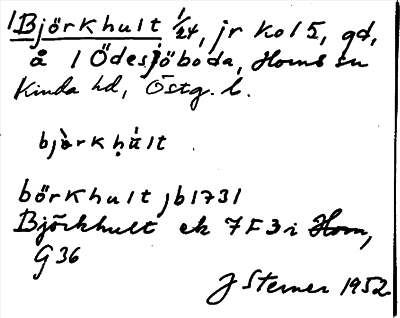 1 Björkhult 1/24, jr kol 5, gd,
å / Ödesjöboda, Horns sn
Kinda hd, Östg. l.
bjòrkhu̍lt
börkhult jb 1731
Björkhult ek 7F3i Horn,
G36
J Sterner 1952